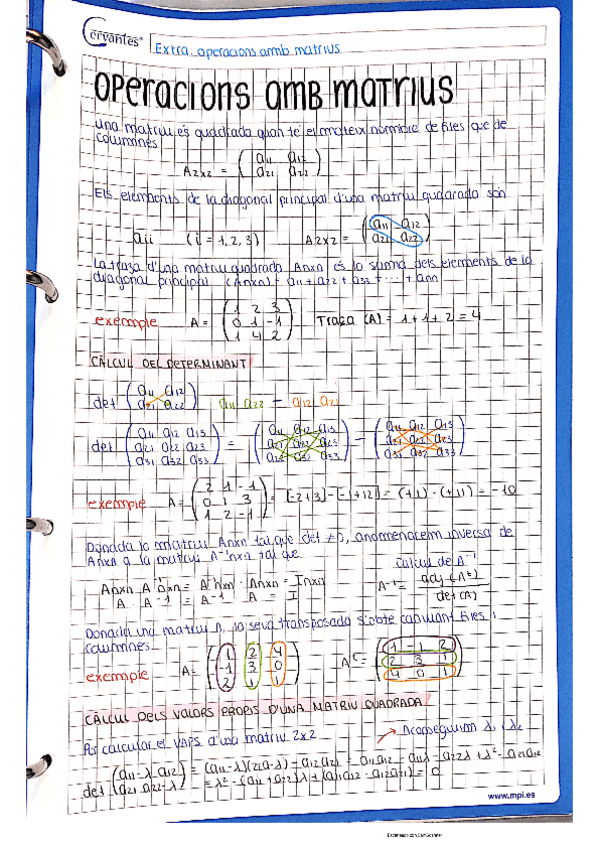 Cervantes
Extra: operacions amb matrius
OPERACIONS AMB MATRIUS
Una matriu és quadrada quan té el mateix nombre de files que de
columnes
A2x2 = ( a11 a12
a21 a22 )
Els elements de la diagonal principal d'una matriu quadrada són
aii (i = 1, 2, 3) A2x2 = ( a11 a12
a21 a22 )
La traça d'una matriu quadrada Anxn és la suma dels elements de la
diagonal principal (Anxn) = a11 + a22 + a33 + ... + ann
exemple A = ( 1 2 3
0 1 -1
1 4 2 ) Traça (A) = 1 + 1 + 2 = 4
CÀLCUL DEL DETERMINANT
det ( a11 a12
a21 a22 ) a11 a22 - a12 a21
det ( a11 a12 a13
a21 a22 a23
a31 a32 a33 ) = ( a11 a12 a13
a21 a22 a23
a33 ) - ( a11 a12 a13
a21 a22 a23
a31 a32 a33 )
exemple A = ( 2 1 -1
0 1 3
1 2 -1 ) = [-2+3] - [-1+12] = (+1) - (+11) = -10
Donada la matriu Anxn tal que det ≠ 0, anomenarem inversa de
Anxn a la matriu A⁻¹nxn tal que
Càlcul de A⁻¹
Anxn · A⁻¹nxn = A⁻¹nxn · Anxn = Inxn
A · A⁻¹ = A⁻¹ A = I
A⁻¹ = adj (Aᵗ) / det (A)
Donada una matriu A, la seva transposada s'obté canviant files i
columnes
exemple A = ( 1 2 4
-1 3 0
2 1 1 ) Aᵗ = ( 1 -1 2
2 3 1
4 0 1 )
CÀLCUL DELS VALORS PROPIS D'UNA MATRIU QUADRADA
Per calcular el VAPS d'una matriu 2x2 → Aconseguim λ1 i λ2
det ( a11-λ a12
a21 a22-λ ) = (a11-λ)(22a-λ) - a12a21 = a11a22 - a11λ - a22λ + λ² - a21a12
= λ² - (a11 + a22)λ + (a11a22 - a12a21) = 0
www.mpi.es
Escaneado con CamScanner